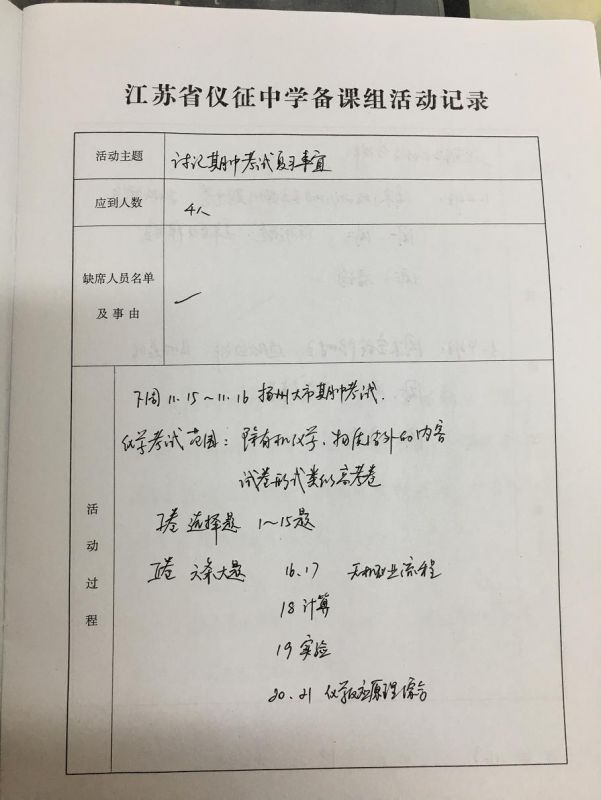 江苏省仪征中学备课组活动记录
活动主题
讨论期中考试复习事宜
应到人数
4人
缺席人员名单
及事由
活动过程
下周11.15～11.16 扬州大市期中考试.
化学考试范围：除有机化学、物质结构外的内容
试卷形式类似高考卷
I卷 选择题 1～15题
II卷 六条大题 16.17 无机工业流程
18 计算
19 实验
20.21 化学反应原理综合